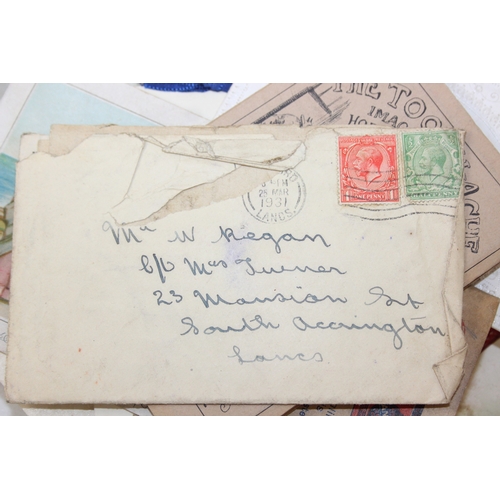 THE TOC
IMAG
HO
LEAGUE
25 MAR
1931
LANCS.
ONE PENNY
Mr W Regan
C/o Mrs Turner
23 Mansion St
South Accrington
Lancs